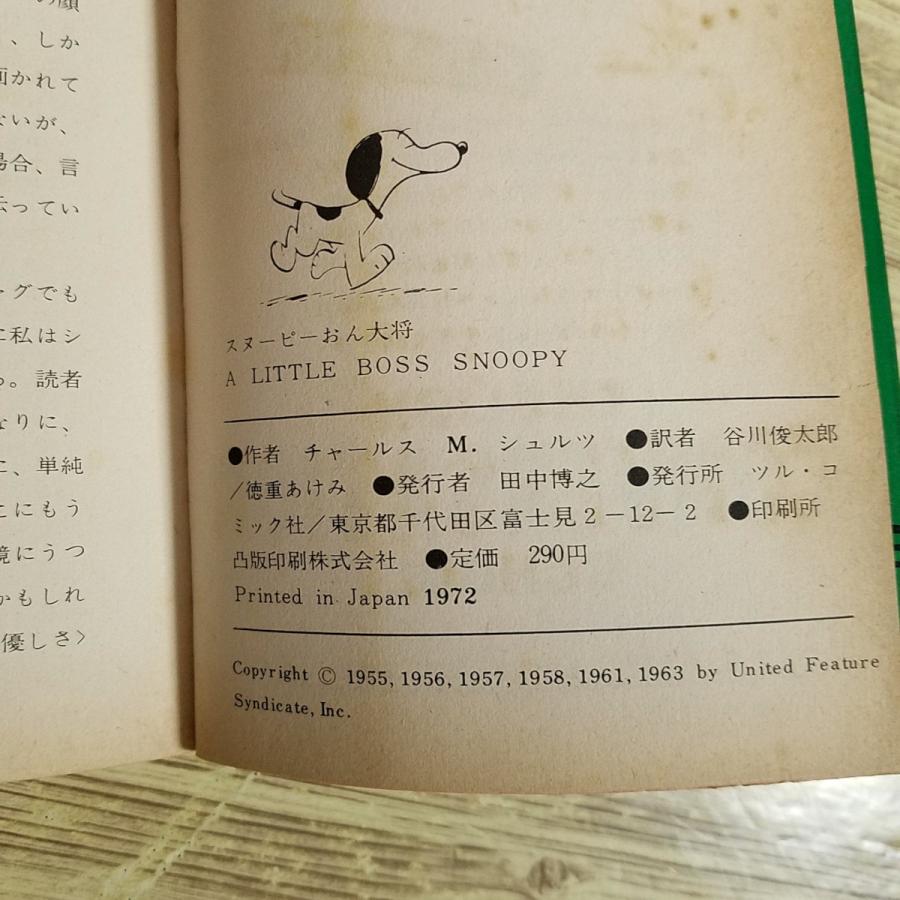 、しか
画かれて
ないが、
場合、言
伝ってい
グでも
に私はシ
。読者
なりに、
に、単純
こにもう
境にうつ
かもしれ
優しさ〉
スヌーピーおん大将
A LITTLE BOSS SNOOPY
●作者 チャールス M. シュルツ ●訳者 谷川俊太郎
/徳重あけみ ●発行者 田中博之 ●発行所 ツル・コ
ミック社/東京都千代田区富士見2-12-2 ●印刷所
凸版印刷株式会社 ●定価 290円
Printed in Japan 1972
Copyright © 1955, 1956, 1957, 1958, 1961, 1963 by United Feature
Syndicate, Inc.